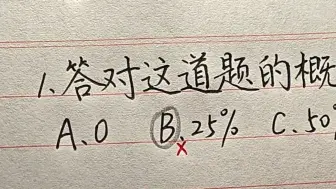 1.答对这道题的概
A.0 B.25% C.50